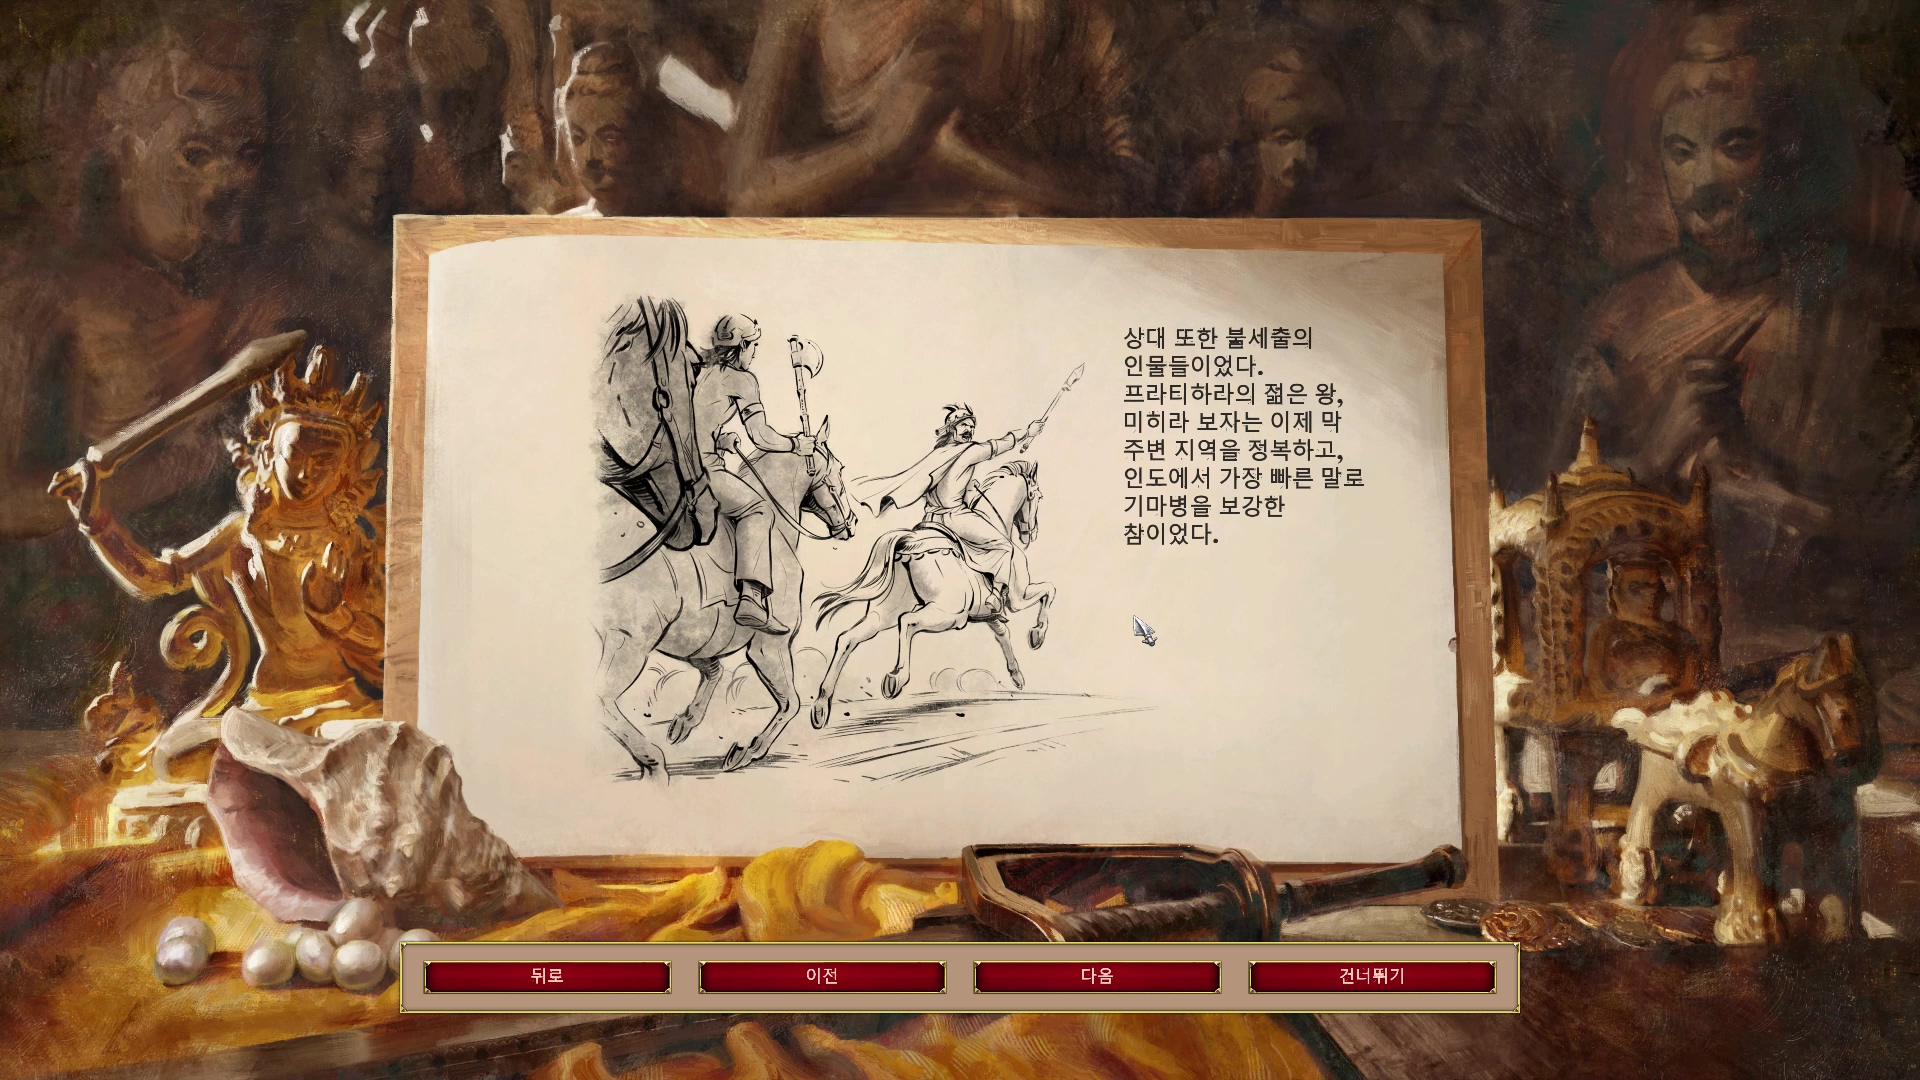 상대 또한 불세출의
인물들이었다.
프라티하라의 젊은 왕,
미히라 보자는 이제 막
주변 지역을 정복하고,
인도에서 가장 빠른 말로
기마병을 보강한
참이었다.
뒤로
이전
다음
건너뛰기